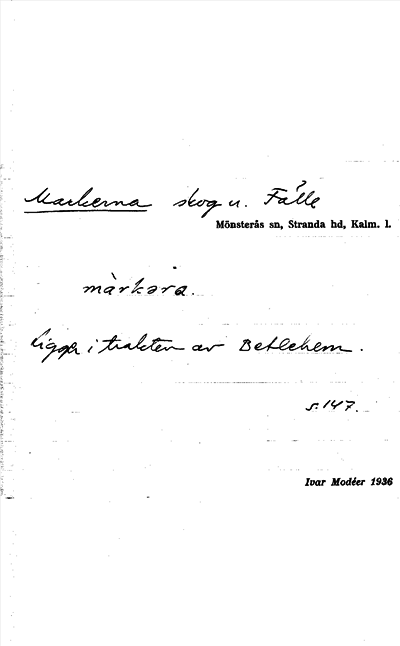 Markerna skog u. Fälle
Mönsterås sn, Stranda hd, Kalm. l.
màrkəra.
Ligger i trakten av Betlehem.
s. 147.
Ivar Modéer 1936